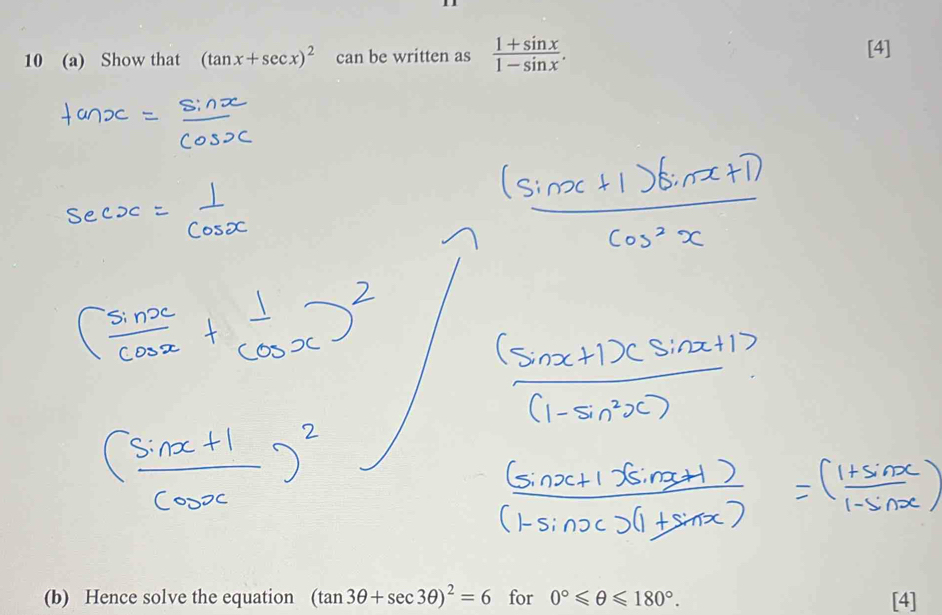 10 (a) Show that (tan x + sec x)² can be written as (1 + sin x)/(1 − sin x). [4]
tanx = sinx/cosx
secx = 1/cosx
(sinx/cosx + 1/cosx)²
((sinx + 1)/cosx)²
(sinx + 1)(sinx + 1)/cos²x
(sinx + 1)(sinx + 1)/(1 − sin²x)
(sinx + 1)(sinx + 1)/(1 − sinx)(1 + sinx) = ((1 + sinx)/(1 − sinx))
(b) Hence solve the equation (tan 3θ + sec 3θ)² = 6 for 0° ⩽ θ ⩽ 180°. [4]